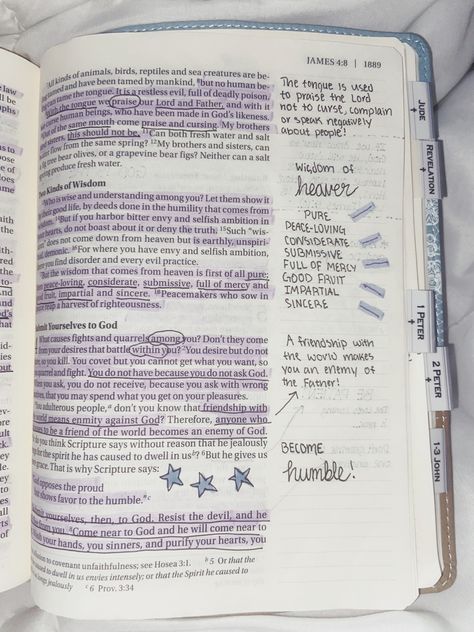 JAMES 4:8 | 1889
⁷All kinds of animals, birds, reptiles and sea creatures are be-
ing tamed and have been tamed by mankind, ⁸but no human be-
ing can tame the tongue. It is a restless evil, full of deadly poison.
⁹With the tongue we praise our Lord and Father, and with it
human beings, who have been made in God's likeness.
of the same mouth come praise and cursing. My brothers
sisters, this should not be. ¹¹Can both fresh water and salt
flow from the same spring? ¹²My brothers and sisters, can
tree bear olives, or a grapevine bear figs? Neither can a salt
spring produce fresh water.
Two Kinds of Wisdom
¹³Who is wise and understanding among you? Let them show it
their good life, by deeds done in the humility that comes from
wisdom. ¹⁴But if you harbor bitter envy and selfish ambition in
your hearts, do not boast about it or deny the truth. ¹⁵Such "wis-
dom" does not come down from heaven but is earthly, unspiri-
demonic. ¹⁶For where you have envy and selfish ambition,
you find disorder and every evil practice.
But the wisdom that comes from heaven is first of all pure;
peace-loving, considerate, submissive, full of mercy and
good fruit, impartial and sincere. ¹⁸Peacemakers who sow in
reap a harvest of righteousness.
Submit Yourselves to God
What causes fights and quarrels among you? Don't they come
from your desires that battle within you? ²You desire but do not
so you kill. You covet but you cannot get what you want, so
quarrel and fight. You do not have because you do not ask God.
When you ask, you do not receive, because you ask with wrong
motives, that you may spend what you get on your pleasures.
You adulterous people,ᵃ don't you know that friendship with
world means enmity against God? Therefore, anyone who
to be a friend of the world becomes an enemy of God.
do you think Scripture says without reason that he jealously
for the spirit he has caused to dwell in usᵇ? ⁶But he gives us
grace. That is why Scripture says:
God opposes the proud
but shows favor to the humble."ᶜ
Submit yourselves, then, to God. Resist the devil, and he
flee from you. ⁸Come near to God and he will come near to
Wash your hands, you sinners, and purify your hearts, you
allusion to covenant unfaithfulness; see Hosea 3:1. ᵇ 5 Or that the
caused to dwell in us envies intensely; or that the Spirit he caused to
longs jealously ᶜ 6 Prov. 3:34
The tongue is used
to praise the Lord
not to curse, complain
or speak negatively
about people!
Wisdom of
heaven
PURE
PEACE-LOVING
CONSIDERATE
SUBMISSIVE
FULL OF MERCY
GOOD FRUIT
IMPARTIAL
SINCERE
A friendship with
the world makes
you an enemy of
the Father!
BECOME
humble!
JUDE
REVELATION
1 PETER
2 PETER
1-3 JOHN